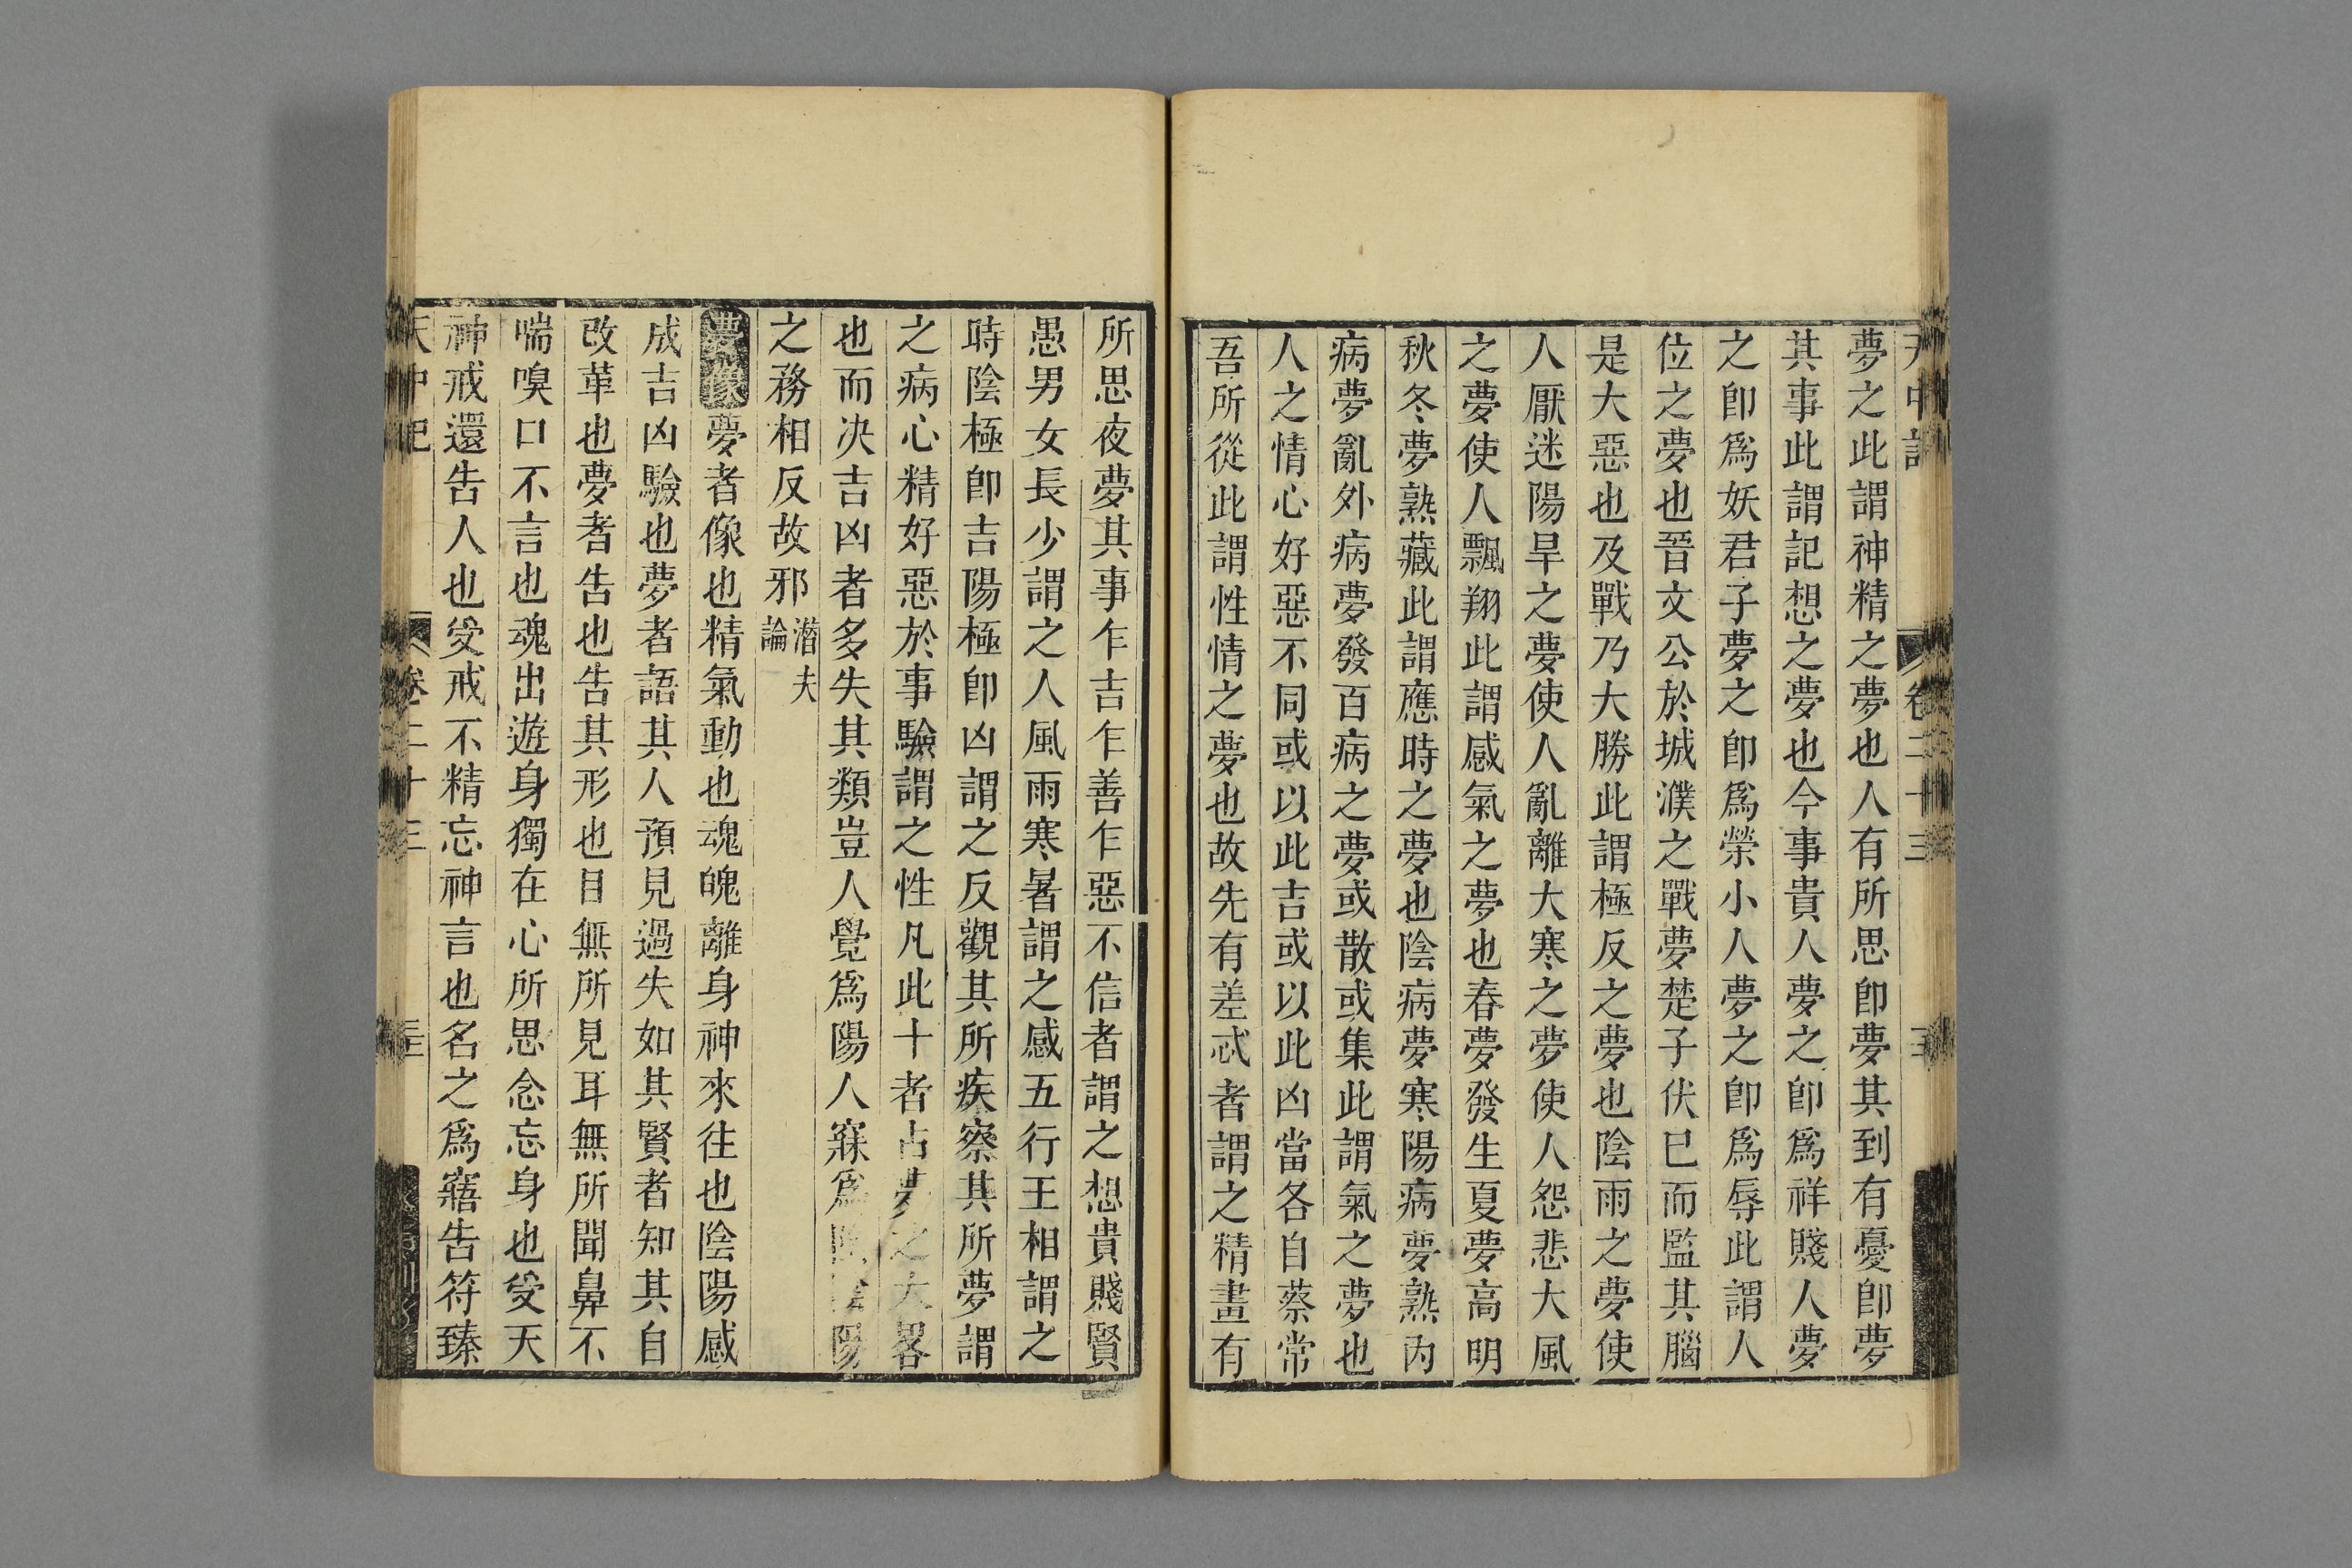 天中記 卷二十三 三
夢之此謂神精之夢也人有所思卽夢其到有憂卽夢
其事此謂記想之夢也今事貴人夢之卽爲祥賤人夢
之卽爲妖君子夢之卽爲榮小人夢之卽爲辱此謂人
位之夢也晉文公於城濮之戰夢楚子伏已而監其腦
是大惡也及戰乃大勝此謂極反之夢也陰雨之夢使
人厭迷陽旱之夢使人亂離大寒之夢使人怨悲大風
之夢使人飄翔此謂感氣之夢也春夢發生夏夢高明
秋冬夢熟藏此謂應時之夢也陰病夢寒陽病夢熟內
病夢亂外病夢發百病之夢或散或集此謂氣之夢也
人之情心好惡不同或以此吉或以此凶當各自蔡常
吾所從此謂性情之夢也故先有差忒者謂之精晝有
所思夜夢其事乍吉乍善乍惡不信者謂之想貴賤賢
愚男女長少謂之人風雨寒暑謂之感五行王相謂之
時陰極卽吉陽極卽凶謂之反觀其所疾察其所夢謂
之病心精好惡於事驗謂之性凡此十者占夢之大畧
也而決吉凶者多失其類豈人覺爲陽人寐爲陰陰陽
之務相反故邪潛夫論
夢像夢者像也精氣動也魂魄離身神來往也陰陽感
成吉凶驗也夢者語其人預見過失如其賢者知其自
改革也夢者告也告其形也目無所見耳無所聞鼻不
喘嗅口不言也魂出遊身獨在心所思念忘身也受天
神戒還告人也受戒不精忘神言也名之爲寤告符臻
天中記 卷二十三 三